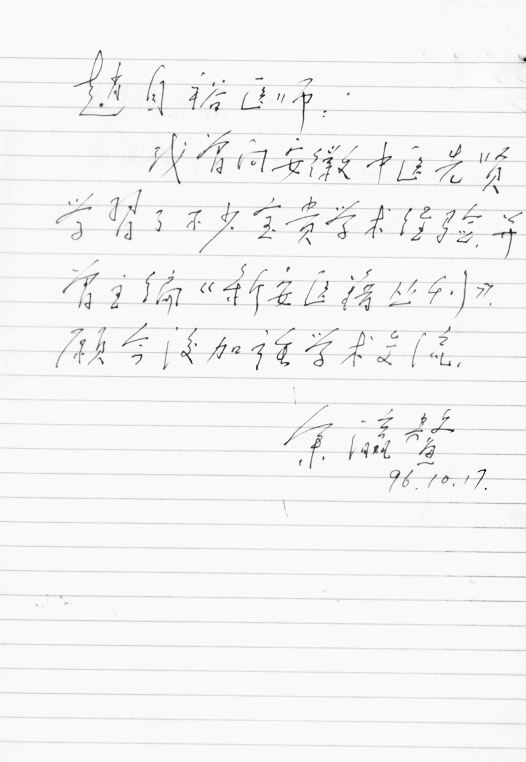 赵自裕医师：
我曾向安徽中医先贤
学习了不少宝贵学术经验，并
曾主编《新安医籍丛刊》。
愿今后加强学术交流。
余瀛鳌
96.10.17.